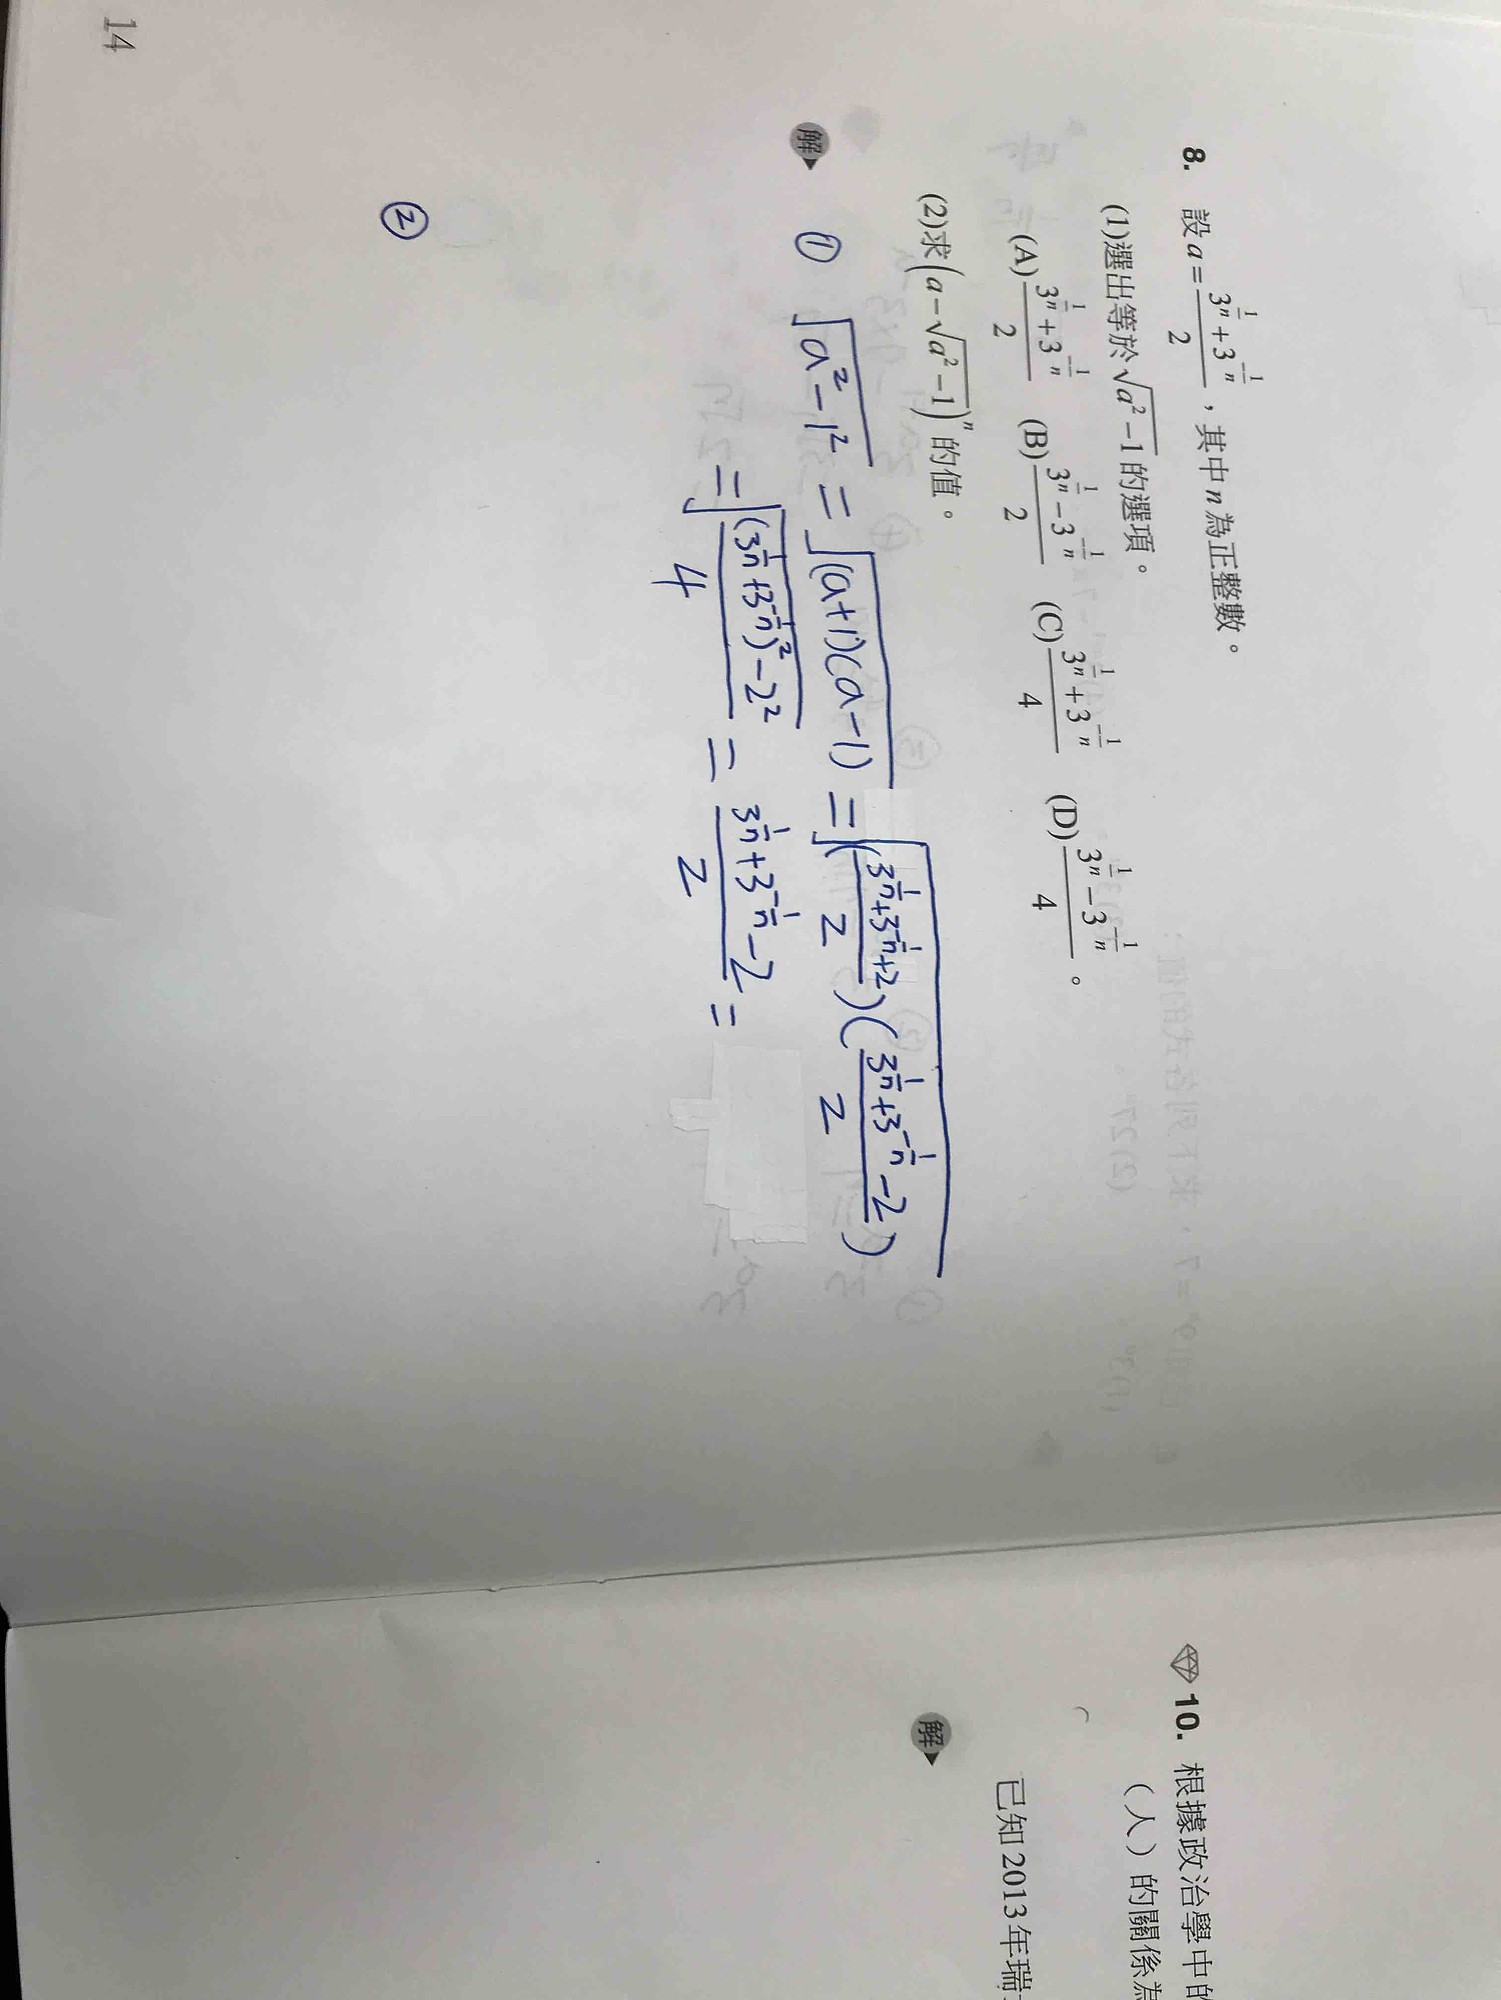 8. 設 a = (3^(1/n) + 3^(-1/n))/2 ,其中 n 為正整數。
(1)選出等於 √(a² − 1) 的選項。
(A) (3^(1/n) + 3^(-1/n))/2 (B) (3^(1/n) − 3^(-1/n))/2 (C) (3^(1/n) + 3^(-1/n))/4 (D) (3^(1/n) − 3^(-1/n))/4 。
(2)求 (a − √(a² − 1))^n 的值。
解
① √(a² − 1²) = √((a+1)(a−1)) = √(((3^(1/n) + 3^(-1/n) + 2)/2)((3^(1/n) + 3^(-1/n) − 2)/2))
= √(((3^(1/n) + 3^(-1/n))² − 2²)/4) = (3^(1/n) + 3^(-1/n) − 2)/2 =
②
14
10. 根據政治學中的
(人)的關係為
已知2013年瑞
解